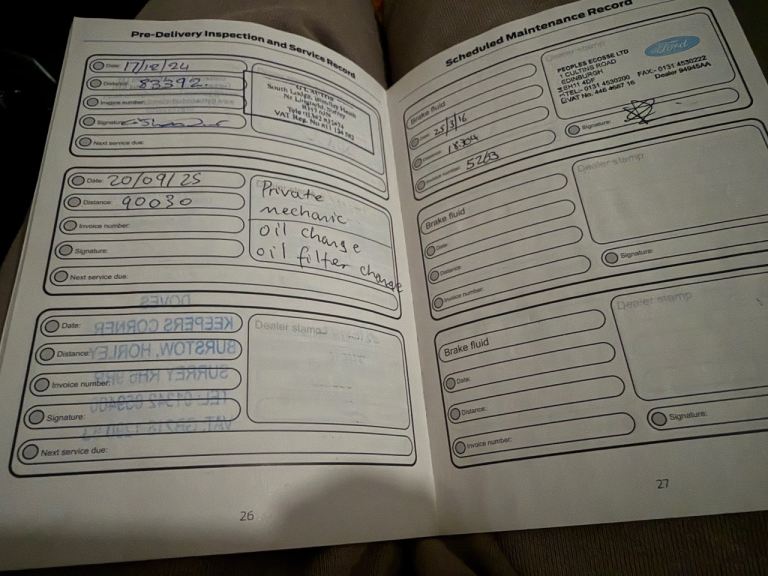 Pre-Delivery Inspection and Service Record
Date: 17/12/24
Distance: 83392
Invoice number:
Signature:
Next service due:
Date: 20/09/25
Distance: 90030
Invoice number:
Signature:
Next service due:
Private
mechanic
oil change
oil filter change
Date:
Distance:
Invoice number:
Signature:
Next service due:
Dealer stamp
DOVES
KEEPERS CORNER
BURSTOW, HORLEY
26
Scheduled Maintenance Record
Brake fluid
Date: 25/3/16
Distance:
Invoice number:
Dealer stamp
PEOPLES ECOSSE LTD
1 CULTINS ROAD
EDINBURGH
EH11 4DF
TEL:- 0131 4530200 FAX:- 0131 4530222
VAT No. 446 4667 16 Dealer 94945AA
Ford
Signature:
Brake fluid
Date:
Distance:
Invoice number:
Dealer stamp
Signature:
Brake fluid
Date:
Distance:
Invoice number:
Dealer stamp
Signature:
27